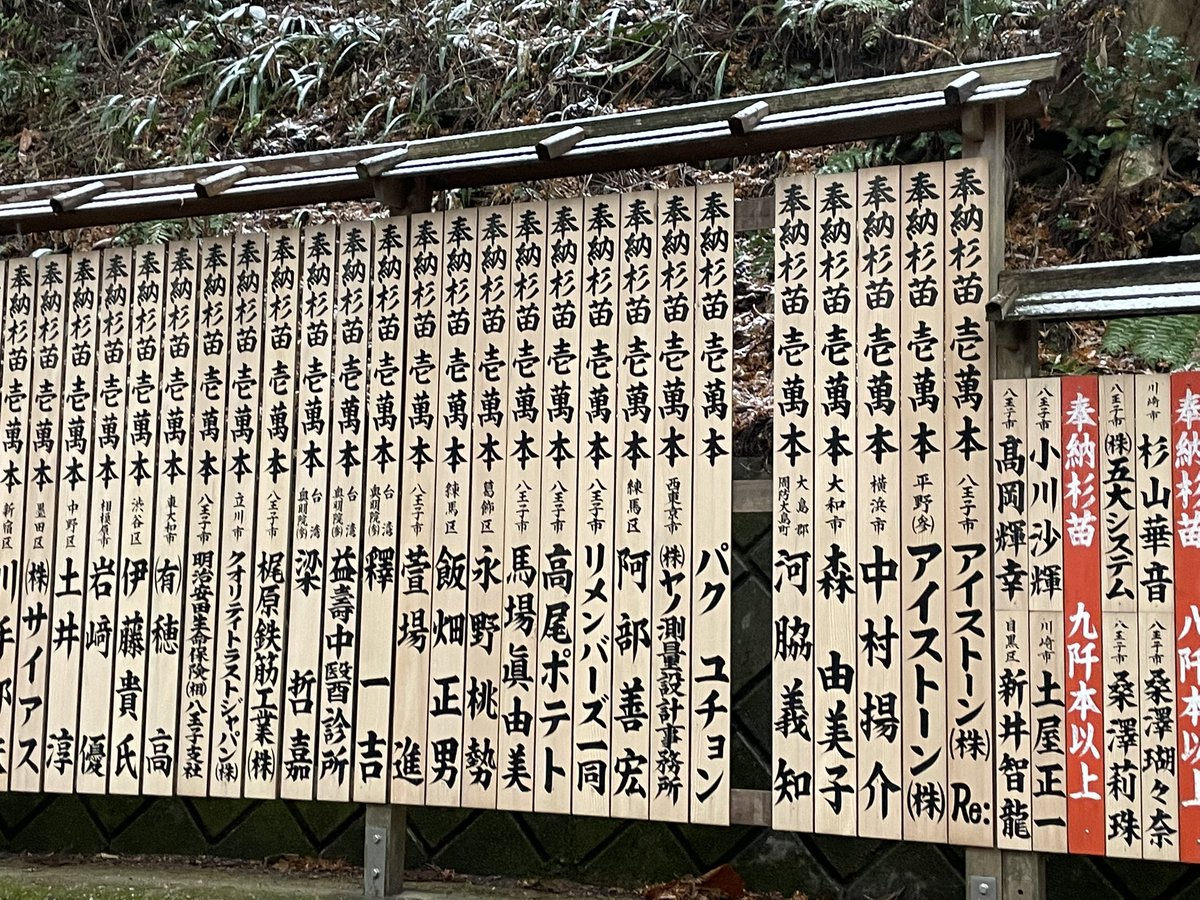 奉納杉苗 九阡本以上
川崎市 杉山華音
八王子市 桑澤瑚々奈
八王子市 ㈱五大システム
八王子市 桑澤莉珠
奉納杉苗 九阡本以上
八王子市 小川沙輝
川崎市 土屋正一
八王子市 髙岡輝幸
目黒区 新井智龍
奉納杉苗壱萬本 八王子市 アイストーン㈱ Re:
奉納杉苗壱萬本 平野(参) アイストーン㈱
奉納杉苗壱萬本 横浜市 中村揚介
奉納杉苗壱萬本 大和市 森由美子
奉納杉苗壱萬本 大島郡周防大島町 河脇義知
奉納杉苗壱萬本 パク ユチョン
奉納杉苗壱萬本 西東京市 ㈱ヤノ測量設計事務所
奉納杉苗壱萬本 練馬区 阿部善宏
奉納杉苗壱萬本 八王子市 リメンバーズ一同
奉納杉苗壱萬本 八王子市 高尾ポテト
奉納杉苗壱萬本 八王子市 馬場眞由美
奉納杉苗壱萬本 葛飾区 永野桃勢
奉納杉苗壱萬本 練馬区 飯畑正男
奉納杉苗壱萬本 八王子市 萱場進
奉納杉苗壱萬本 台湾奥明院(参) 釋一吉
奉納杉苗壱萬本 台湾奥明院(参) 益壽中醫診所
奉納杉苗壱萬本 台湾奥明院(参) 梁哲嘉
奉納杉苗壱萬本 八王子市 梶原鉄筋工業㈱
奉納杉苗壱萬本 立川市 クオリティトラストジャパン㈱
奉納杉苗壱萬本 八王子市 明治安田生命保険(相)八王子支社
奉納杉苗壱萬本 東大和市 ㈲穂高
奉納杉苗壱萬本 渋谷区 伊藤貴氏
奉納杉苗壱萬本 相模原市 岩﨑優
奉納杉苗壱萬本 中野区 土井淳
奉納杉苗壱萬本 墨田区 ㈱サイアス
奉納杉苗壱萬本 新宿区